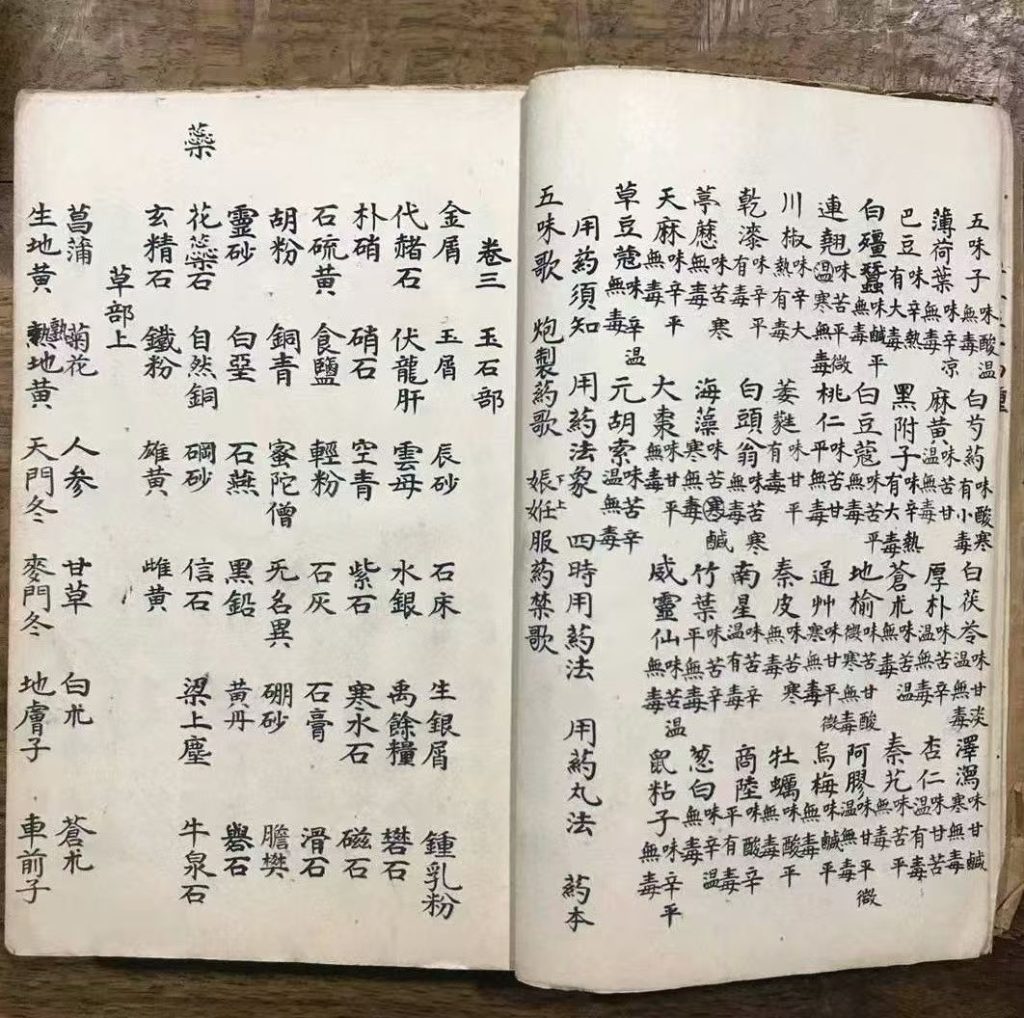 五味子味酸温無毒 白芍药味酸寒有小毒 白茯苓味甘淡温無毒 澤瀉味甘鹹寒無毒
薄荷葉味辛凉無毒 麻黄味苦甘温無毒 厚朴味苦辛温無毒 杏仁味甘苦温有毒
巴豆味辛熱有大毒 黑附子味辛熱有大毒 蒼朮味苦温無毒 秦艽味苦平無毒
白殭蠶味鹹平無毒 白豆蔻味苦平無毒 地榆味苦甘酸微寒無毒 阿膠味甘平微温無毒
連翹味苦平微温寒無毒 桃仁味苦甘平無毒 通艸味甘平微寒無毒 烏梅味鹹平無毒
川椒味辛大熱有毒 萎蕤味甘平有毒 秦皮味苦寒無毒 牡蠣味酸平無毒
乾漆味辛平有毒 白頭翁味苦寒無毒 南星味苦辛温有毒 商陸味酸辛平有毒
葶藶味苦寒無毒 海藻味苦鹹寒寒無毒 竹葉味苦辛平無毒 葱白味辛温無毒
天麻味辛平無毒 大棗味甘平無毒 威靈仙味苦温無毒 鼠粘子味辛平無毒
草豆蔻味辛温無毒 元胡索味苦辛温無毒
用药須知 用药法象 四時用药法 用药丸法 药本
五味歌 炮製药歌 娠妊下上服药禁歌
卷三 玉石部
金屑 玉屑 辰砂 石床 生銀屑 鍾乳粉
代赭石 伏龍肝 雲母 水銀 禹餘糧 礬石
朴硝 硝石 空青 紫石 寒水石 磁石
石硫黄 食鹽 輕粉 石灰 石膏 滑石
胡粉 銅青 蜜陀僧 无名異 硼砂 膽樊
靈砂 白堊 石燕 黑鉛 黄丹 礜石
藥
花蕊石 自然銅 碙砂 信石 梁上塵 牛泉石
玄精石 鐵粉 雄黄 雌黄
草部上
菖蒲 菊花 人参 甘草 白朮 蒼朮
生地黄 熟地黄 天門冬 麥門冬 地膚子 車前子